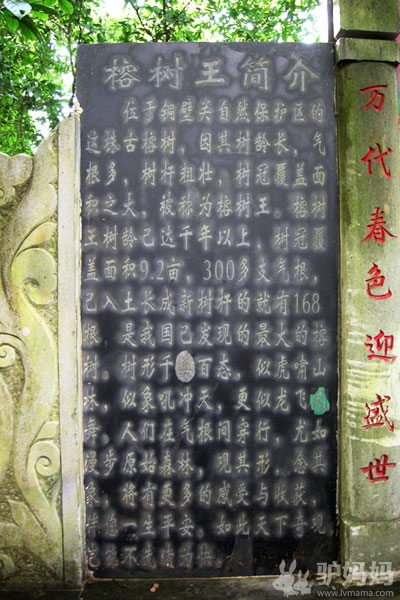 榕树王简介
位于铜壁关自然保护区的
这株古榕树，因其树龄长，气
根多，树杆粗壮，树冠覆盖面
积之大，被称为榕树王。榕树
王树龄已达千年以上，树冠覆
盖面积9.2亩，300多支气根，
已入土长成新树杆的就有168
根，是我国已发现的最大的榕
树。树形千姿百态，似虎啸山
林，似象吼冲天，更似龙飞
舞。人们在气根间穿行，尤如
漫步原始森林，观其形，念其
象，将有更多的感受与收获，
一生平安。如此天下奇观
万代春色迎盛世
驴妈妈
www.lvmama.com